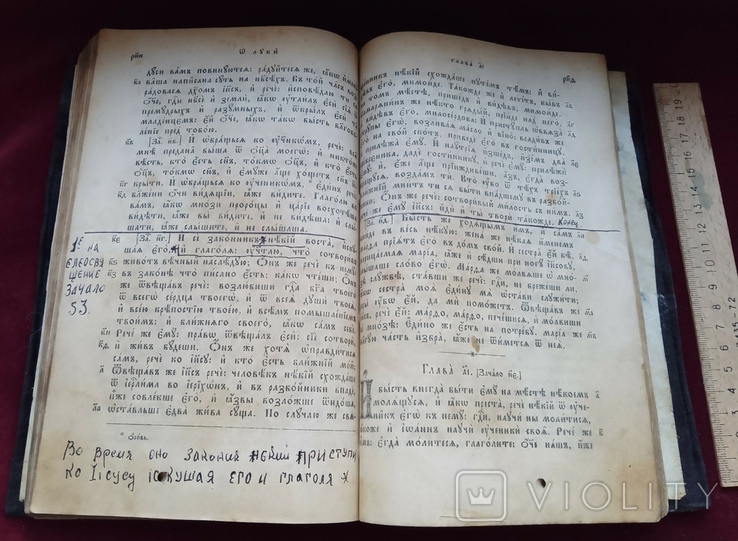 рни
Ѿ лꙋки́
дꙋси вамъ повинꙋются: радꙋйтеся же, ꙗкѡ имена
ваша написана сꙋть на нб҃сѣхъ. Въ той часъ воз-
радовася дꙋхомъ іи҃съ, и рече: исповѣдаютися
ѻ҃че, гд҃и нб҃се и земли, ꙗкѡ ᲂутаилъ еси
премꙋдрыхъ и разꙋмныхъ, и ѿкрылъ еси
младенцемъ: ей ѻ҃че, ꙗкѡ такѡ бысть благово-
леніе пред тобою.
[За҃. н҃в.] И ѡбращься ко ᲂучн҃кѡмъ, рече: вся
мнѣ предана быша ѿ ѻ҃ц҃а моегѡ: и никтоже
вѣсть, кто есть сн҃ъ, токмѡ ѻ҃ц҃ъ: и кто есть
ѻ҃ц҃ъ, токмѡ сн҃ъ, и емꙋже аще хощетъ сн҃ъ ѿ-
крыти. И ѡбращься ко ᲂученикѡмъ, единъ рече:
блажени ѻчи видящіи, ꙗже видите. Глаголю бо
вамъ, ꙗкѡ мнози пророцы и царіе восхотѣша
видѣти, ꙗже вы видите, и не видѣша: и слы-
шати, ꙗже слышите, и не слышаша.
[За҃. нг҃.] И се законникъ нѣкій воста, искꙋ-
шая его, и глаголя: ᲂучт҃лю, что сотворивъ,
животъ вѣчный наслѣдꙋю; Онъ же рече къ немꙋ:
въ законѣ что писано есть; какѡ чтеши; Онъ
же ѿвѣщавъ рече: возлюбиши гд҃а бг҃а твоего
ѿ всегѡ сердца твоегѡ, и ѿ всея дꙋши твоея,
и всею крѣпостію твоею, и всѣмъ помышленіемъ
твоимъ: и ближняго своего, ꙗкѡ самъ себе.
Рече же емꙋ: правѡ ѿвѣщалъ еси: сіе сотвори,
и живъ бꙋдеши. Онъ же хотя ѡправдитися
самъ, рече ко іи҃сꙋ: и кто есть ближній мой;
Ѿвѣщавъ же іи҃съ, рече: человѣкъ нѣкій схождаше
ѿ іер҃лима во іеріхѡнъ, и въ разбойники впаде,
иже совлекше его, и ꙗзвы возложше ѿидоша,
ѡставльше едва жива сꙋща. По слꙋчаю же свя-
1е
на
елеосвя
щение
Зачало
53.
Во время оно законик некий приступи
ко Іисусу искушая его и глаголя
глава і҃.
рнѳ
щенникъ нѣкій схождаше пꙋтемъ тѣмъ: и ви-
дѣвъ его, мимоиде. Такожде же и леѵітъ, бывъ на
томъ мѣстѣ, пришедъ и видѣвъ, мимоиде. Са-
марянинъ же нѣкто грядый, прїиде над него,
и видѣвъ его, милосердова: и пристꙋпль ѡбвяза
стрꙋпы его, возливая масло и вино: всадивъ же
его на свой скотъ, приведе его въ гостинницꙋ,
и прилежа емꙋ. И наꙋтрія изшедъ, изъемъ два
сребреника, даде гостинникꙋ, и рече емꙋ: прилежи
емꙋ: и еже аще прїиждивеши, азъ егда воз-
вращꙋся, воздамъ ти. Кто ᲂубо ѿ тѣхъ тріехъ
ближній мнитъ ти ся быти впадшемꙋ въ разбой-
ники; Онъ же рече: сотворивый милость съ нимъ.
Рече же емꙋ іи҃съ: иди и ты твори такожде. Конец.
Бысть же ходящымъ имъ, и самъ
вниде въ весь нѣкꙋю: жена же нѣкая именемъ
марѳа пріятъ его въ домъ свой. И сестра ей бѣ
нарицаемая марія, ꙗже и сѣдши при ногꙋ іисовꙋ,
слышаше слово его. Марѳа же молвяше ѡ мнозѣ
слꙋжбѣ, ставши же рече: гд҃и, не брежеши ли,
ꙗкѡ сестра моя единꙋ мя ѡстави слꙋжити;
рцы ᲂубо ей, да ми поможетъ. Ѿвѣщавъ же
іи҃съ рече ей: марѳо, марѳо, печешися, и молвиши
ѡ мнозѣ: едино же есть на потребꙋ. Марія же
благꙋю часть избра, ꙗже не ѿимется ѿ нея.
Глава а҃і. [Зачало н҃е.]
И бысть внегда быти емꙋ на мѣстѣ нѣкоемъ
молящꙋся, и ꙗкѡ преста, рече нѣкій ѿ ᲂуче-
никъ егѡ къ немꙋ: гд҃и, наꙋчи ны молитися,
ꙗкоже и іѡаннъ наꙋчи ᲂученики своя. Рече же
имъ: егда молитеся, глаголите: Ѻ҃че нашъ, иже
VIOLITY